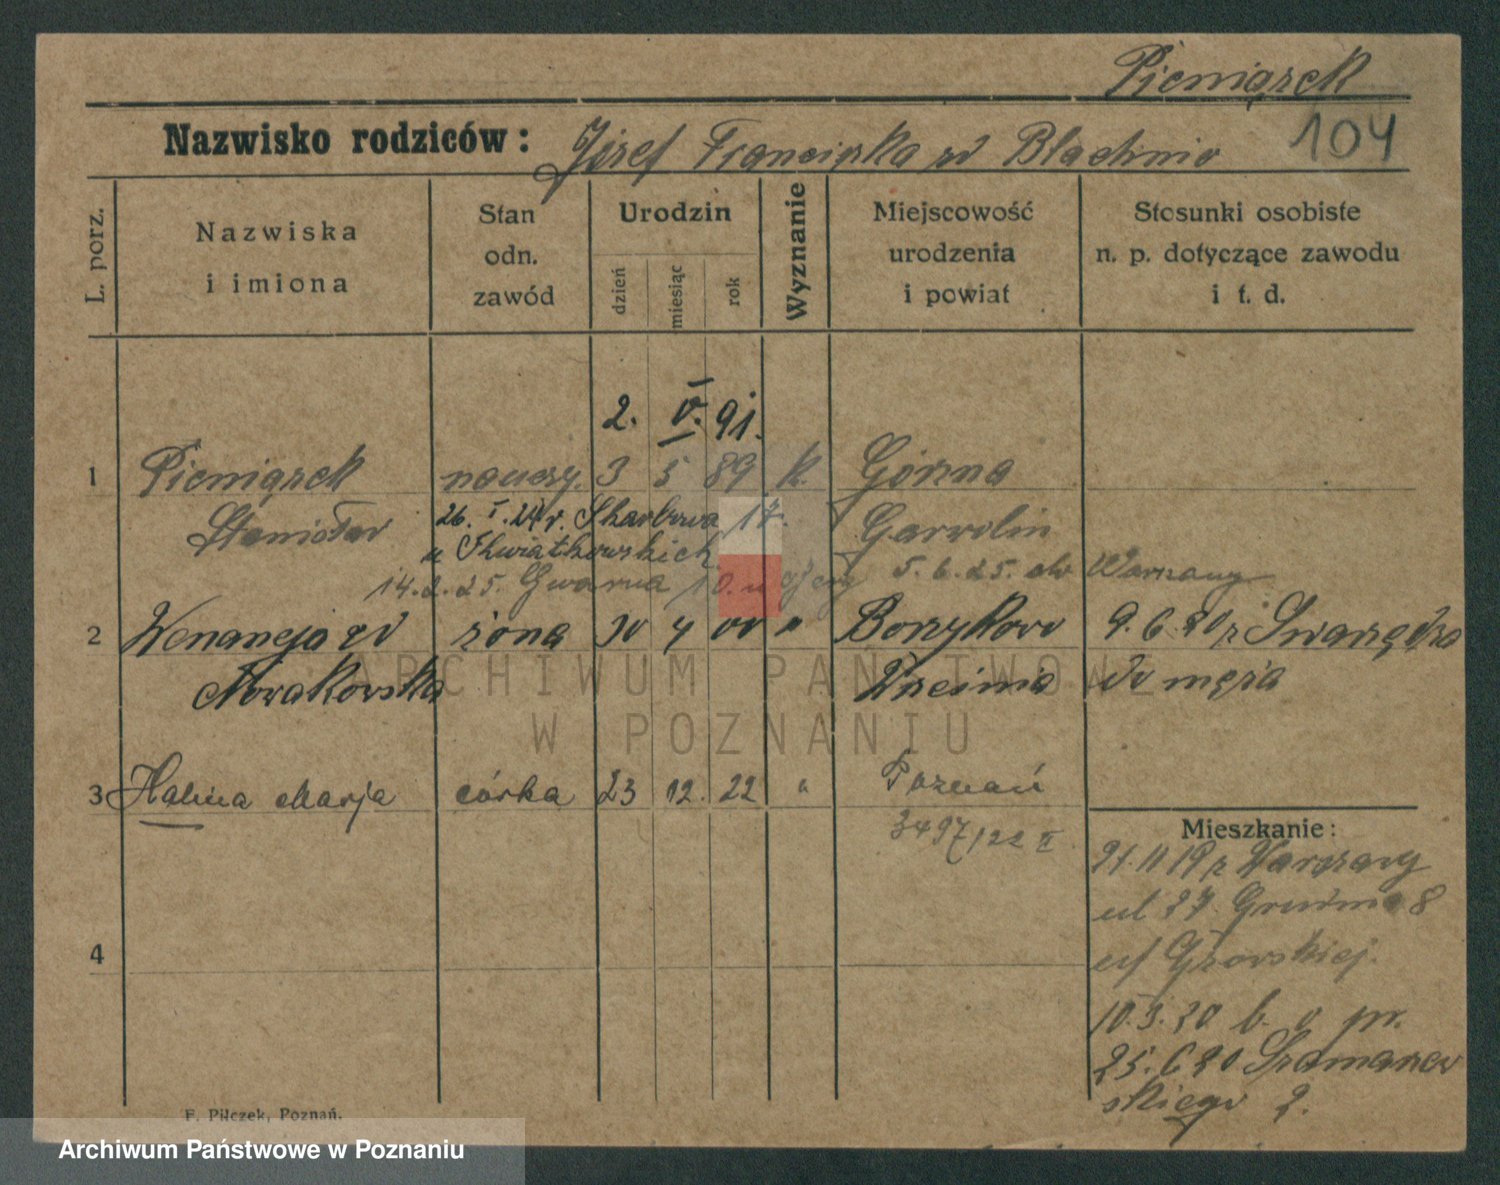 Pieniążek
Nazwisko rodziców: Józef Franciszka zd Blachnio 104
L. porz.
Nazwiska
i imiona
Stan
odn.
zawód
Urodzin
dzień
miesiąc
rok
Wyznanie
Miejscowość
urodzenia
i powiat
Stosunki osobiste
n. p. dotyczące zawodu
i t. d.
2. V. 91.
1 Pieniążek nauczy. 3 5 89 k. Górzna
Stanisław 26. I. 24 r. Skarbowa 17. Garwolin
u Kwiatkowskich
14.2.25. Gwarna 10. u 5.6.25. do Warszawy
2 Wenancja zd żona 30 4 00 " Borzykowo 9.6.20 z Swarzędza
Nowakowska Września do męża
3 Halina Marja córka 23 12. 22 " Poznań
3497/22 II
Mieszkanie:
21.11 19 z Warszawy
ul 27 Grudnia 8
u/ Górskiej.
10.3.20 b. o pr.
25.6 20 Szamarzew
skiego 2.
4
F. Pilczek, Poznań.
ARCHIWUM PAŃSTWOWE
W POZNANIU
Archiwum Państwowe w Poznaniu